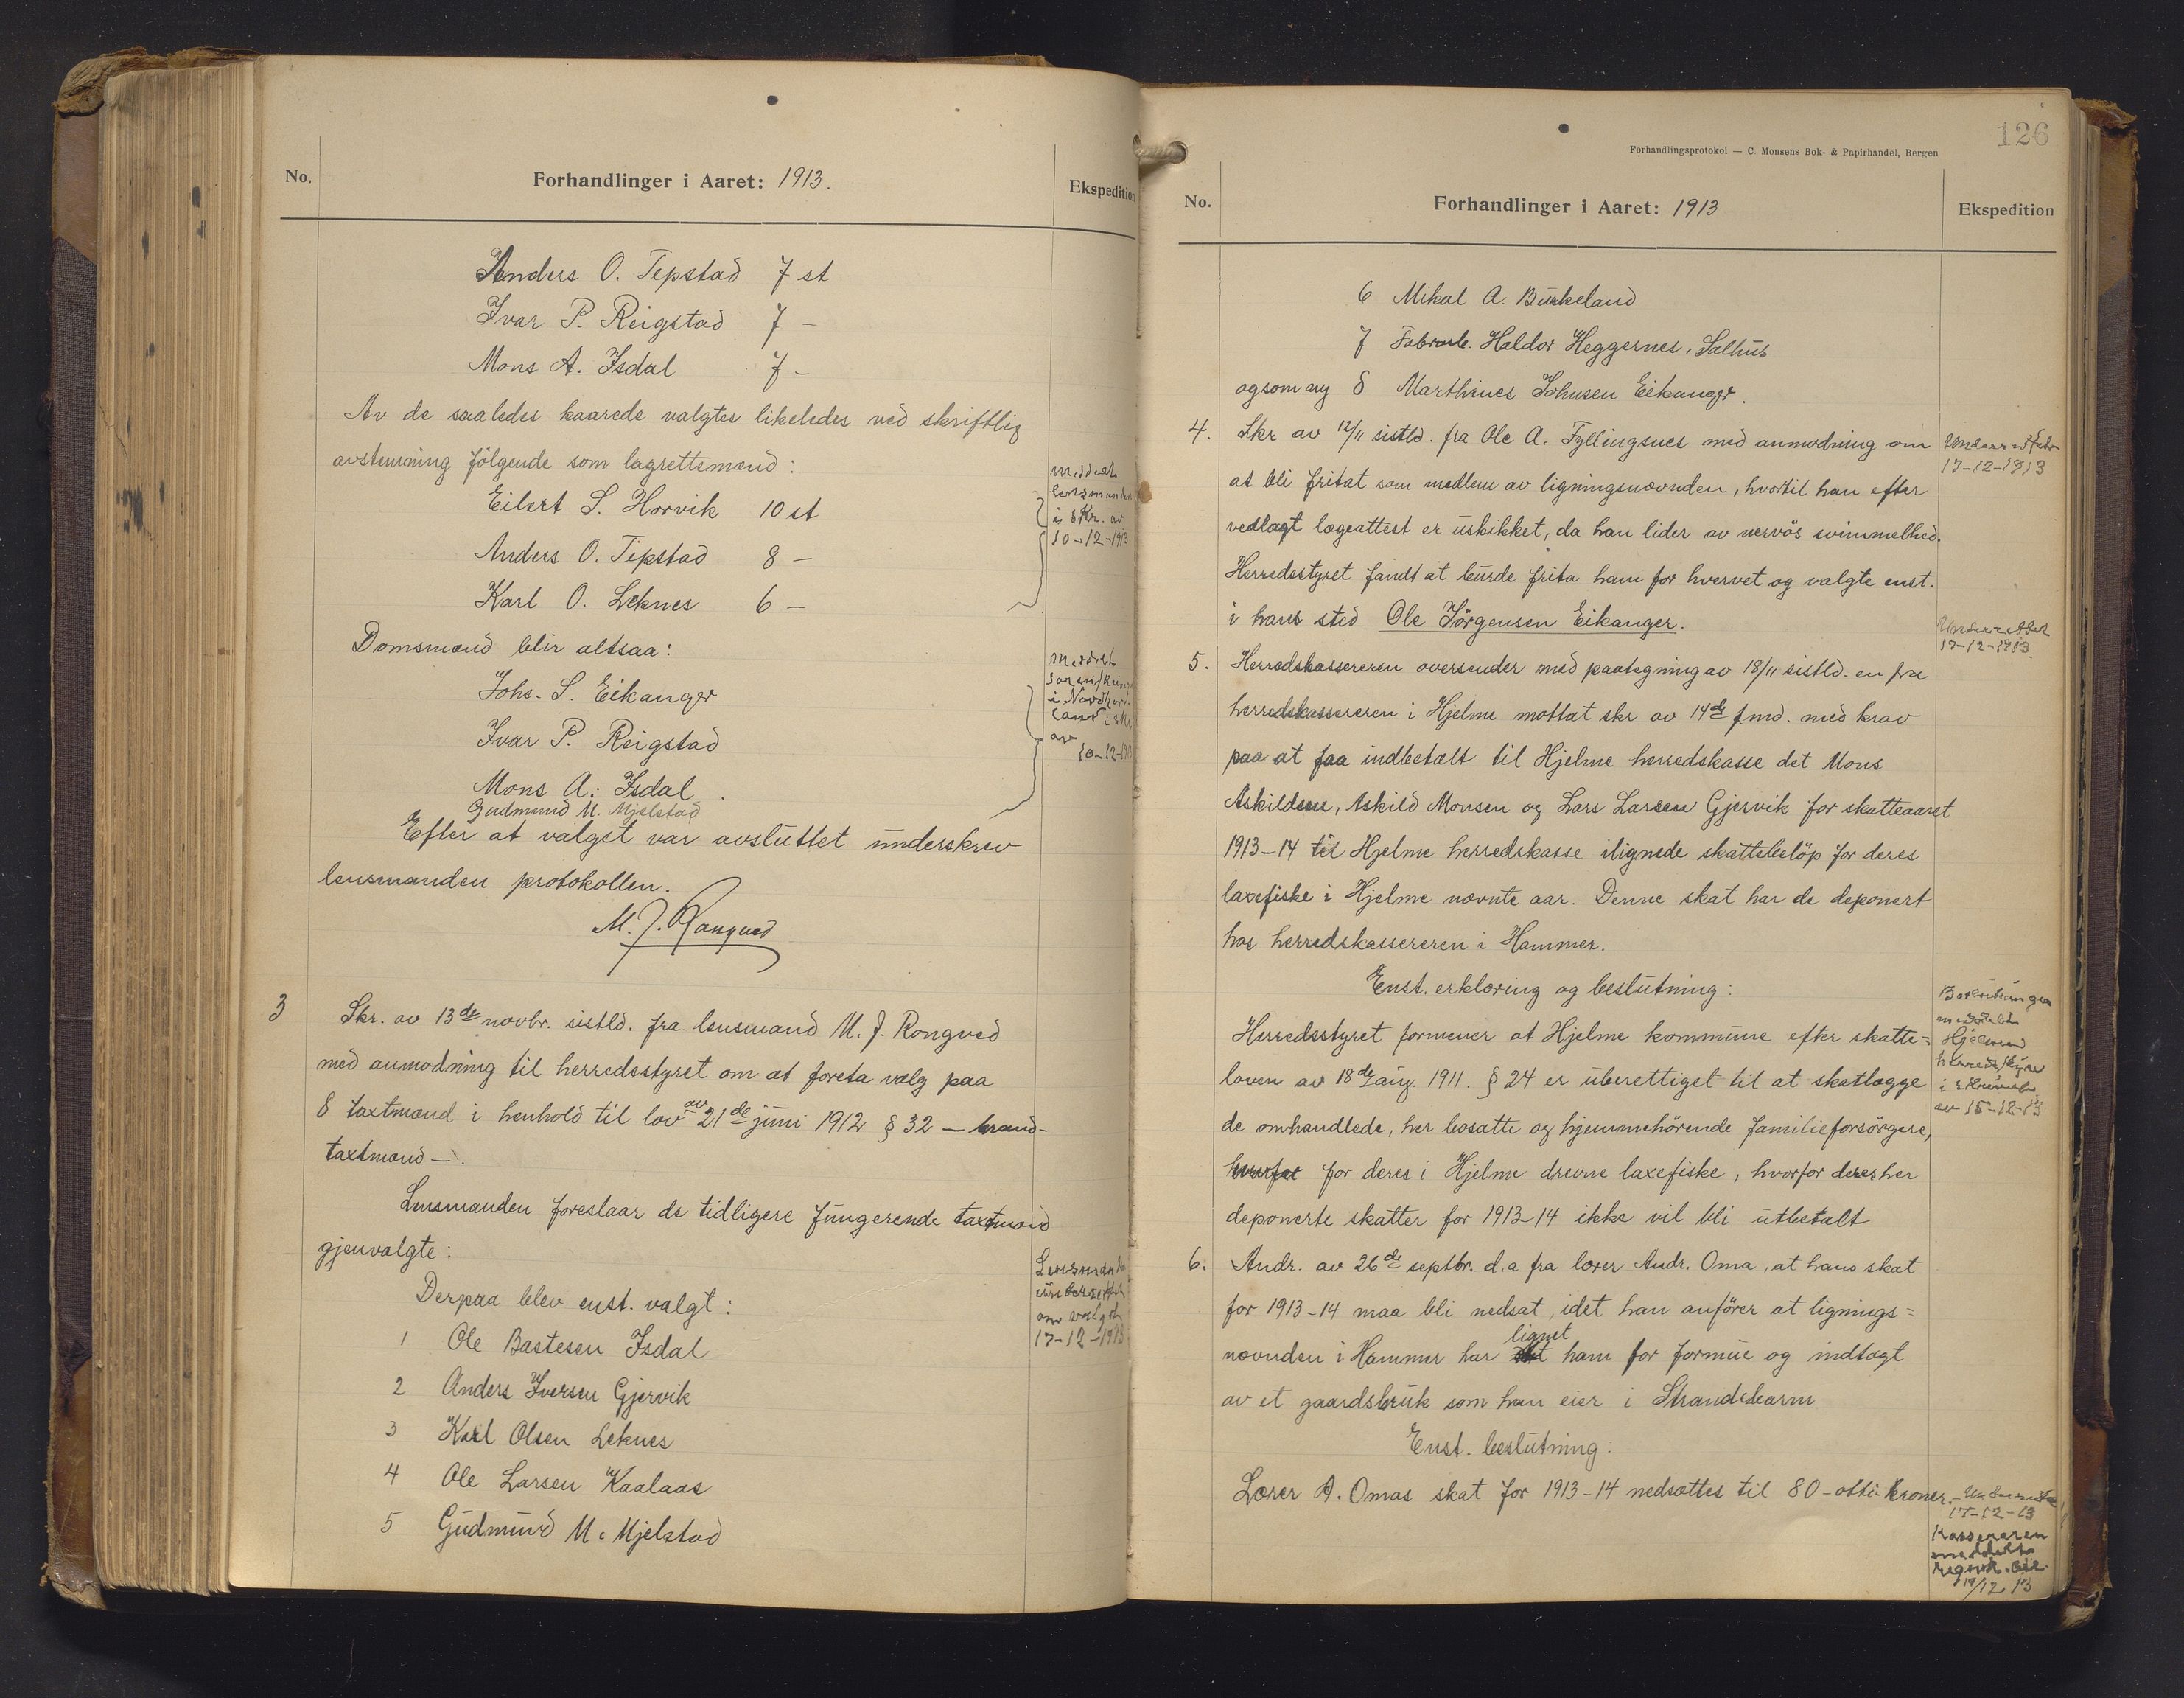 No.
Forhandlinger i Aaret: 1913.
Ekspedition
Anders O. Tepstad 7 st
Ivar P. Reigstad 7 –
Mons A. Isdal 7 –
Av de saaledes kaarede valgtes likeledes ved skriftlig
avstemning følgende som lagrettemænd:
Eilert S. Horvik 10 st
Anders O. Tepstad 8 –
Karl O. Leknes 6 –
meddelt
lensmanden
i skr. av
10-12-1913
Domsmænd blir altsaa:
Johs. S. Eikanger
Ivar P. Reigstad
Mons A. Isdal.
Gudmund M. Mjelstad
meddelt
sorenskriv
i Nordhord-
land i skr
av
10-12-1913
Efter at valget var avsluttet underskrev
lensmanden protokollen.
M. J. Rongved
3 Skr. av 13de novbr. sistld. fra lensmand M. J. Rongved
med anmodning til herredsstyret om at foreta valg paa
8 taxtmænd i henhold til lov av 21de juni 1912 § 32 – brand-
taxtmænd –.
Lensmanden foreslaar de tidligere fungerende taxtmænd
gjenvalgte:
Derpaa blev enst. valgt:
1 Ole Bastesen Isdal
2 Anders Iversen Gjervik
3 Karl Olsen Leknes
4 Ole Larsen Kaalaas
5 Gudmund M. Mjelstad
Lensmanden
underrettet
om valget
17-12-1913
126
Forhandlingsprotokol — C. Monsens Bok- & Papirhandel, Bergen
No.
Forhandlinger i Aaret: 1913
Ekspedition
6 Mikal A. Burkeland
7 Fabrarb. Haldor Heggernes, Salhus
og som ny 8 Marthines Johnsen Eikanger.
4. Skr av 12/11 sistld. fra Ole A. Fyllingsnes med anmodning om
at bli fritat som medlem av ligningsnævnden, hvortil han efter
vedlagt lægeattest er uskikket, da han lider av nervøs svimmelhed.
Herredsstyret fandt at burde frita ham for hvervet og valgte enst.
i hans sted Ole Jörgensen Eikanger.
Underrettet
17-12-1913
Underrettet
17-12-1913.
5. Herredskassereren oversender med paategning av 18/11 sistld. en fra
herredskassereren i Hjelme mottat skr av 14de s. md. med krav
paa at faa indbetalt til Hjelme herredskasse det Mons
Askildsen, Askild Monsen og Lars Larsen Gjervik for skatteaaret
1913–14 til Hjelme herredskasse ilignede skattebeløp for deres
laxefiske i Hjelme nævnte aar. Denne skat har de deponert
hos herredskassereren i Hammer.
Enst. erklæring og beslutning:
Herredsstyret formener at Hjelme kommune efter skatte=
loven av 18de aug. 1911. § 24 er uberettiget til at skatlægge
de omhandlede, her bosatte og hjemmehörende familieforsörgere,
hvorfor for deres i Hjelme drevne laxefiske, hvorfor deres her
deponerte skatter for 1913-14 ikke vil bli utbetalt
meddelt
Hjelme
herredsstyre
i skrivelse
av 15-12-13
6. Andr. av 26de septbr. d.a fra lærer Andr. Oma, at hans skat
for 1913-14 maa bli nedsat, idet han anförer at lignings=
nævnden i Hammer har lignet ham for formue og indtægt
av et gaardsbruk som han eier i Strandebarm
Enst. beslutning:
Lærer A. Omas skat for 1913-14 nedsættes til 80 – otti kroner.
Underrettet
17-12-13
Kassereren
meddelt
17/12 13